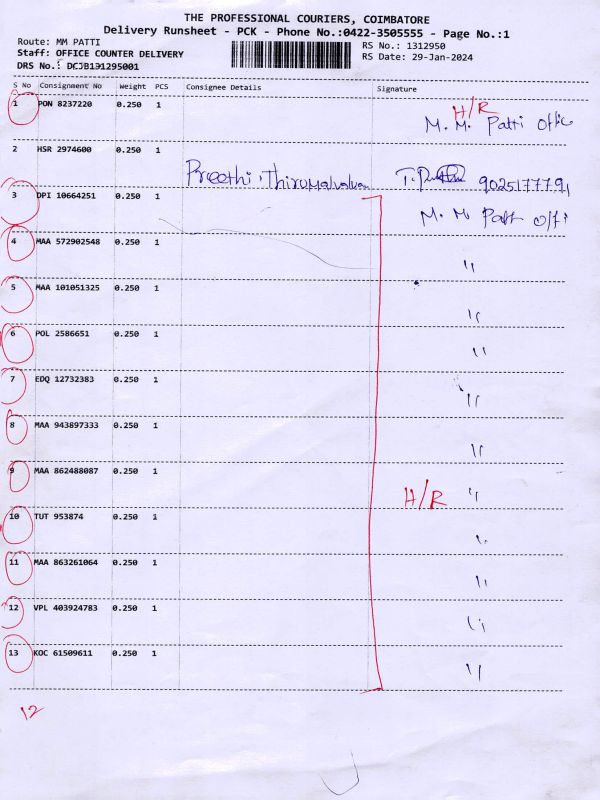 THE PROFESSIONAL COURIERS, COIMBATORE
Delivery Runsheet - PCK - Phone No.:0422-3505555 - Page No.:1
Route: MM PATTI
RS No.: 1312950
Staff: OFFICE COUNTER DELIVERY
RS Date: 29-Jan-2024
DRS No.: DCJB191295001
S No Consignment No Weight PCS Consignee Details Signature
1 PON 8237220 0.250 1 H/R
M. M. Patti Offic
2 HSR 2974600 0.250 1
Preethi. Thirumalvalavan 9025177791
3 DPI 10664251 0.250 1 M. M Patti offi
4 MAA 572902548 0.250 1 "
5 MAA 101051325 0.250 1 "
6 POL 2586651 0.250 1 "
7 EDQ 12732383 0.250 1 "
8 MAA 943897333 0.250 1 "
9 MAA 862488087 0.250 1 H/R "
10 TUT 953874 0.250 1 "
11 MAA 863261064 0.250 1 "
12 VPL 403924783 0.250 1 "
13 KOC 61509611 0.250 1 "
12